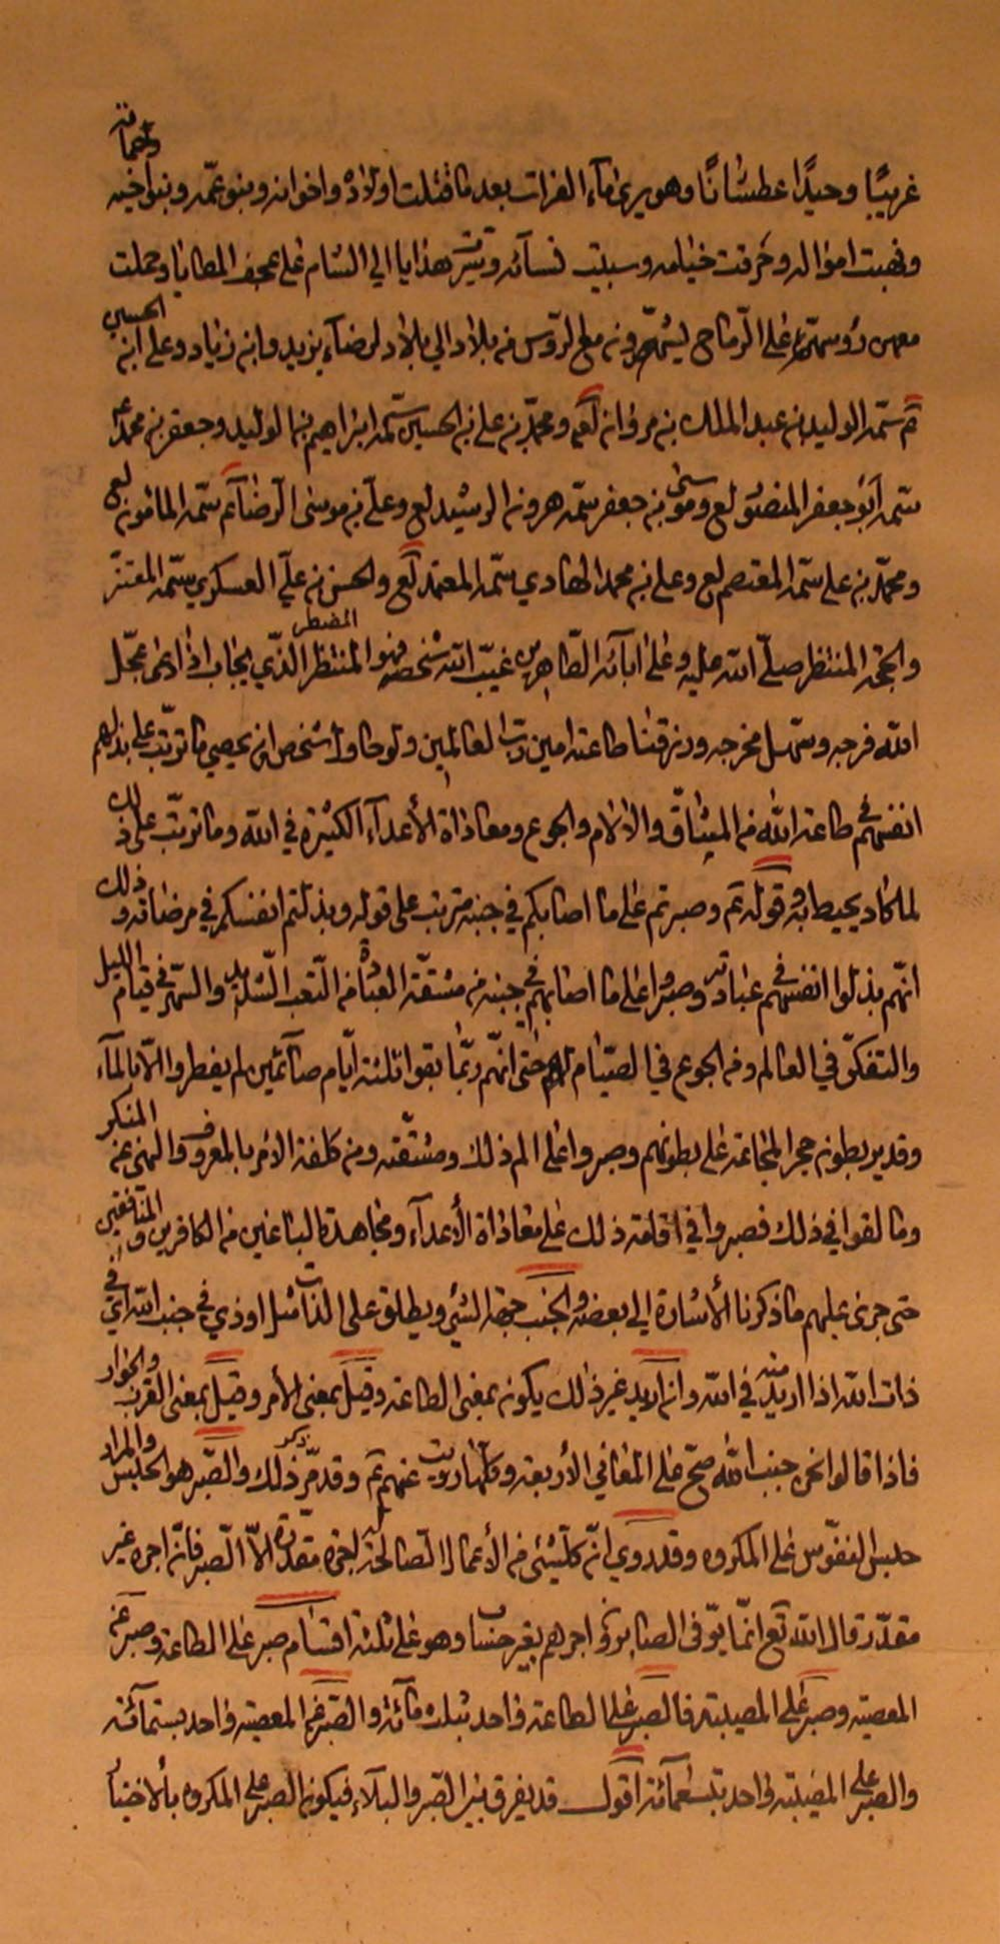 غريبًا وحيدًا عطشانًا وهو يرى ماء الفرات بعد ما قتلت اولاده واخوانه وبنو عمّه وبنو اخيه واصحابه
ونهبت امواله وحرقت خيامه وسبيت نسآئه وتيسّر هدايا الى الشام على عجف المطايا وحملت
معهن رؤسهم على الرماح يشهّرونه مع الرؤس من بلاد الى بلاد لرضاء يزيد وابن زياد وعلى ابن الحسين
ع سمّه الوليد بن عبد الملك بن مروان لعه ومحمد بن على بن الحسين سمّه ابراهيم بن الوليد وجعفر بن محمد ع
سمّه ابو جعفر المنصور لع وموسى بن جعفر سمّه هرون الرشيد لع وعلى بن موسى الرضا ع سمّه المامون لع
ومحمّد بن على سمّه المعتصم لع وعلى بن محمد الهادي سمّه المعتمد لع والحسن بن علي العسكري سمّه المعتز
والحجة المنتظر صلّى الله عليه وعلى ابآئه الطاهرين غيّب الله شخصه فهو المنتظر المضطر الذي يجاب اذا دعى عجّل
الله فرجه وسهّل مخرجه ورزقنا طاعته امين ربّ العالمين ولو حاول شخص ان يحصي ما ترتّب على بذلهم
انفسهم في طاعة الله من الميثاق والالام والجوع ومعاداة الأعداء الكثيرة في الله وما ترتّب على ذلك
لما كاد يحيط به قوله ع وصبرتم على ما اصابكم في جنبه مترتب على قوله وبذلتم انفسكم في مرضاته وذلك
انّهم بذلوا انفسهم في عبادته وصبروا على ما اصابهم في جنبه من مشقّة العبادة من التّعب الشديد والسّهر في قيام الليل
والتفكّر في العالم ومن الجوع في الصيام حتى انّهم ربّما بقوا ثلثة ايّام صآئمين لم يفطروا الاّ بالمآء
وقد يربطون حجر المجاعة على بطونهم وصبروا على الم ذلك ومشقّته ومن كلفة الامر بالمعروف والنهي عن المنكر
وما لقوا في ذلك فصبروا في اقامة ذلك على معاداة الأعدآء ومجاهدة الباغين من الكافرين والمنافقين
حتى جرى عليهم ما ذكرنا الأشارة الى بعضه والجنب جهة الشيء ويطلق على الذات مثل اوذي في جنب الله اي في
ذات الله اذا اريد منه في الله وان اريد غير ذلك يكون بمعنى الطاعة وقيل بمعنى الأمر وقيل بمعنى القرب والجوار
فاذا قالوا نحن جنب الله صحّ على المعاني الأربعة وكلّها رويت عنهم ع وقد مرّ ذكر ذلك والصّبر هو الحبس والمراد
حبس النفوس على المكروه وقد روي انّ كلّ شيء من الأعمال الصالحة له اجرة مقدّرة الاّ الصّبر فانّ اجره غير
مقدّر قال الله تع انّما يوّفى الصابرون اجرهم بغير حساب وهو على ثلثة اقسام صبر على الطاعة وصبر عن
المعصية وصبر على المصيبة فالصبر على الطاعة واحد بثلاثمائة والصّبر عن المعصية واحد بستمآئة
والصبر على المصيبة واحد بتسعمآئة اقول قد يفرق بين الصّبر والبلاء فيكون الصبر على المكروه بالاختيا